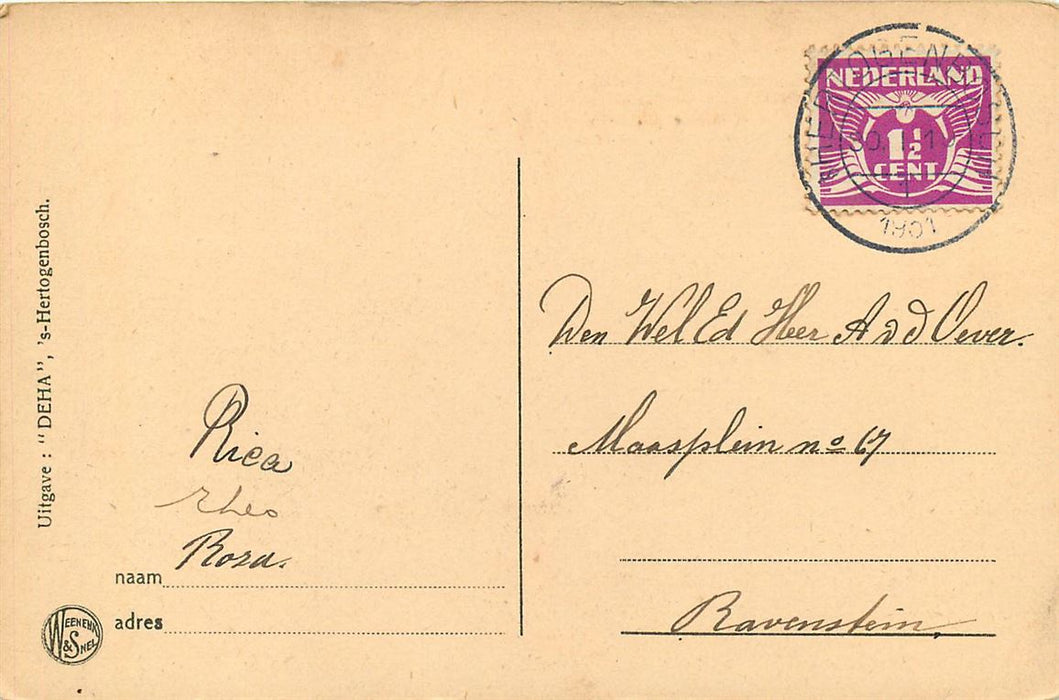 Uitgave : "DEHA", 's-Hertogenbosch.
NEDERLAND
1½
CENT
1931
Den Wel Ed Heer A v d Oever.
Maasplein no 67
Ravenstein,
Rica
Theo
Rosa.
naam
adres
WEENENK
& SNEL